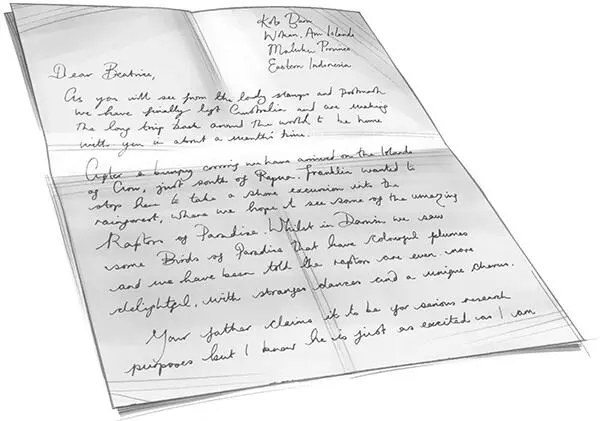 Kota Baru
Wokan, Aru Islands
Maluku Province
Eastern Indonesia
Dear Beatrice,
As you will see from the lovely stamps and postmark
we have finally left Australia and are making
the long trip back around the world to be home
with you in about a month's time.
After a bumpy crossing we have arrived on the Islands
of Crow, just south of Papua. Franklin wanted to
stop here to take a short excursion into the
rainforest, where we hope to see some of the amazing
Raptors of Paradise. Whilst in Darwin we saw
some Birds of Paradise that have colourful plumes
and we have been told the raptors are even more
delightful, with strange dances and a unique chorus.
Your father claims it to be for serious research
purposes but I know he is just as excited as I am